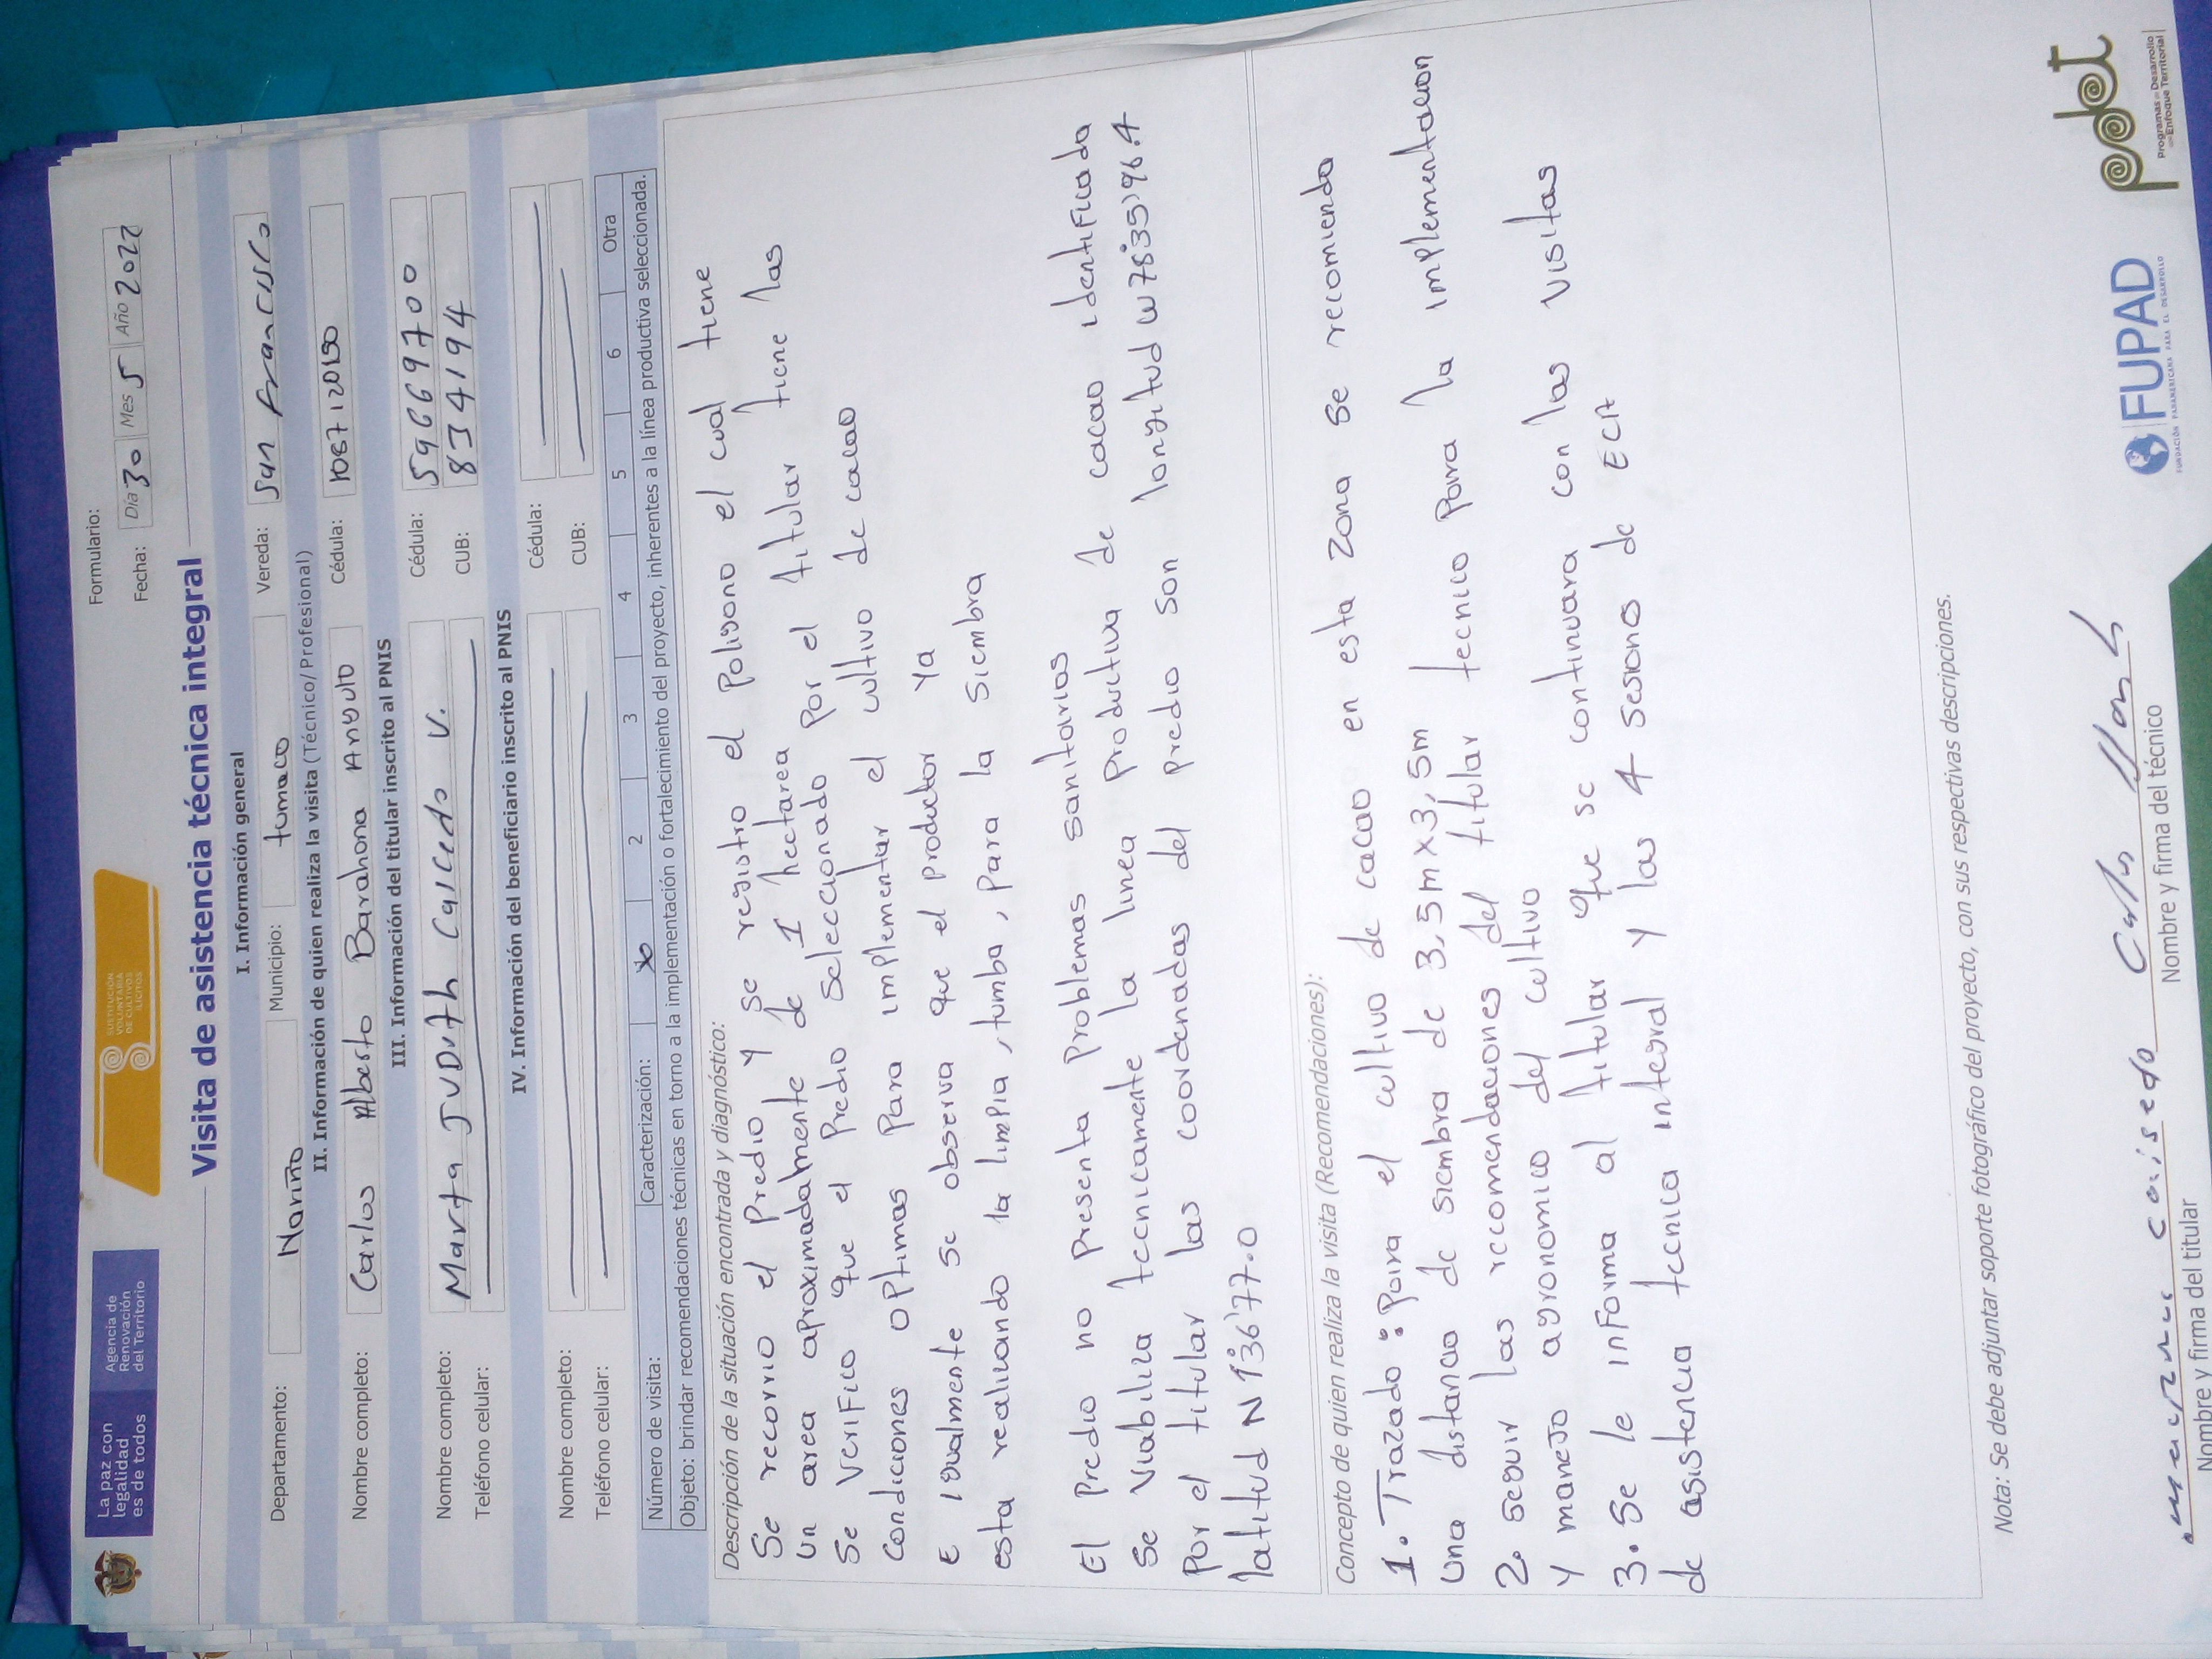 La paz con
legalidad
es de todos
Agencia de
Renovación
del Territorio
SUSTITUCIÓN
VOLUNTARIA
DE CULTIVOS
ILÍCITOS
Formulario:
Fecha: Día 30 Mes 5 Año 2022
Visita de asistencia técnica integral
I. Información general
Departamento: Nariño Municipio: tumaco Vereda: San francisco
II. Información de quien realiza la visita (Técnico/Profesional)
Nombre completo: Carlos Alberto Barahona Angulo Cédula: 1087120150
III. Información del titular inscrito al PNIS
Nombre completo: Marta JUDith Caicedo V. Cédula: 59669700
Teléfono celular: CUB: 834194
IV. Información del beneficiario inscrito al PNIS
Nombre completo: Cédula:
Teléfono celular: CUB:
Número de visita: Caracterización: X 2 3 4 5 6 Otra
Objeto: brindar recomendaciones técnicas en torno a la implementación o fortalecimiento del proyecto, inherentes a la línea productiva seleccionada.
Descripción de la situación encontrada y diagnóstico:
Se recorrio el Predio y se registro el Poligono el cual tiene
un area aproximadalmente de 1 hectarea
Se verifico que el Predio seleccionado por el titular tiene las
condiciones optimas Para implementar el cultivo de cacao
E igualmente se observa que el productor ya
esta realizando la limpia, tumba, para la siembra
El Predio no presenta problemas sanitarios
Se viabiliza tecnicamente la linea productiva de cacao identificada
Por el titular las coordenadas del predio son longitud W78°35'96.4
latitud N 1°36'77.0
Concepto de quien realiza la visita (Recomendaciones):
1. Trazado: Para el cultivo de cacao en esta zona se recomienda
una distancia de siembra de 3,5m x 3,5m
2. seguir las recomendaciones del titular tecnico para la implementacion
y manejo agronomico del cultivo
3. Se le informa al titular que se continuara con las visitas
de asistencia tecnica integral y las 4 sesiones de ECA
Nota: Se debe adjuntar soporte fotográfico del proyecto, con sus respectivas descripciones.
Nombre y firma del titular
Nombre y firma del técnico
FUPAD
FUNDACIÓN PANAMERICANA PARA EL DESARROLLO
pdet
Programas de Desarrollo
con Enfoque Territorial